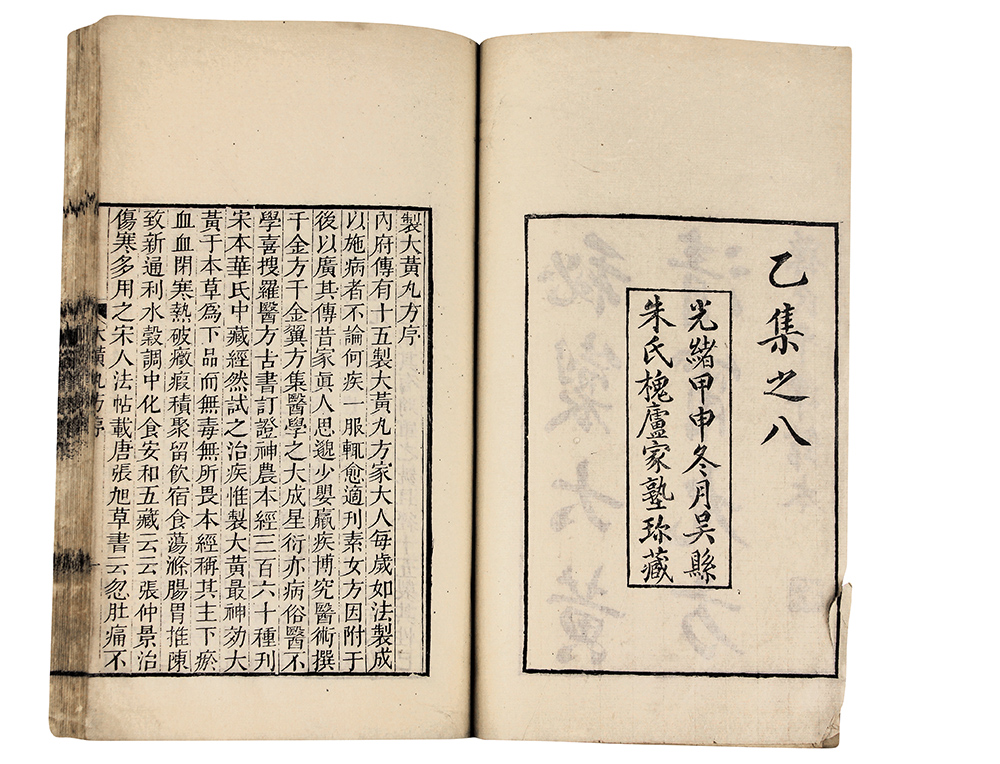 乙集之八
光緒甲申冬月吳縣
朱氏槐廬家塾珍藏
製大黃丸方序
內府傳有十五製大黃丸方家大人每歲如法製成
以施病者不論何疾一服輒愈適刊素女方因附于
後以廣其傳昔家眞人思邈少嬰羸疾博究醫術撰
千金方千金翼方集醫學之大成星衍亦病俗醫不
學喜搜羅醫方古書訂證神農本經三百六十種刊
宋本華氏中藏經然試之治疾惟製大黃最神効大
黃于本草爲下品而無毒無所畏本經稱其主下瘀
血血閉寒熱破癥瘕積聚留飲宿食蕩滌腸胃推陳
致新通利水穀調中化食安和五藏云云張仲景治
傷寒多用之宋人法帖載唐張旭草書云忽肚痛不
大黃丸方序